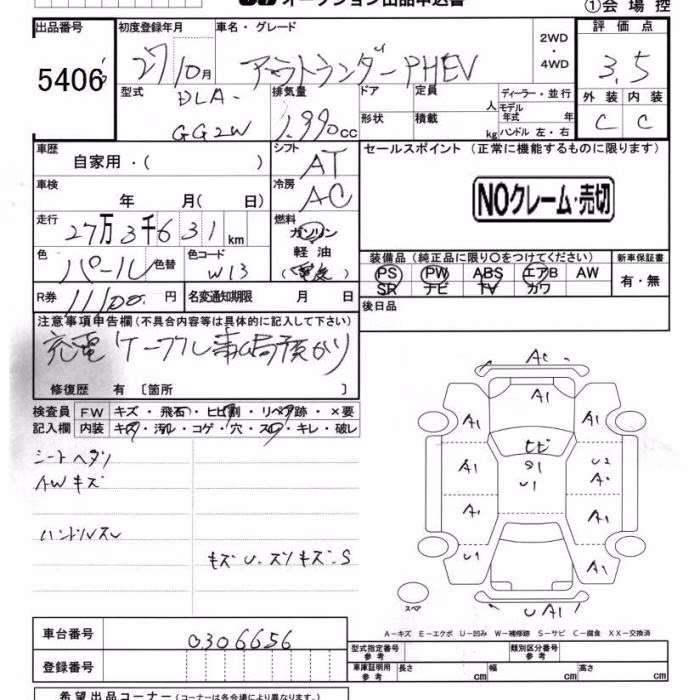 オークション出品申込書
①会場控
出品番号 初度登録年月 車名・グレード 2WD・4WD 評価点
5406 27/10月 アウトランダーPHEV 3.5
型式 DLA-GG2W 排気量 1,990cc ドア 定員 人 ディーラー・並行 外装 内装
形状 積載 kg モデル年式 年 ハンドル 左・右 C C
車歴 自家用・( ) シフト AT セールスポイント (正常に機能するものに限ります)
車検 年 月( 日) 冷房 AC NOクレーム・売切
走行 27万3千631km 燃料 ガソリン
軽油
(電気)
色 パール 色替 色コード W13 装備品(純正品に限り○をつけてください) 新車保証書
PS PW ABS エアB AW 有・無
SR ナビ TV カワ
R券 11100円 名変通知期限 月 日 後日品
注意事項申告欄(不具合内容等は具体的に記入して下さい)
充電ケーブル事ム局預かり
修復歴 有 〔箇所 〕
検査員 FW キズ・飛石・ヒビ割・リペア跡・×要
記入欄 内装 キズ・汚れ・コゲ・穴・スレ・キレ・破レ
シートヘタリ
AWキズ
ハンドルスレ
キズU.スリキズ.S
AC
A1
A1 A1
ヒビ
A1 S1 U2
U1 A2
A1 A1
U1 A1
スペア UA1
A−キズ E−エクボ U−凹み W−補修跡 S−サビ C−腐食 XX−交換済
車台番号 0306656
型式指定番号 参考 類別区分番号 参考
登録番号 車庫証明用 参考 長さ cm 幅 cm 高さ cm
希望出品コーナー(コーナーは各会場により異なります。)